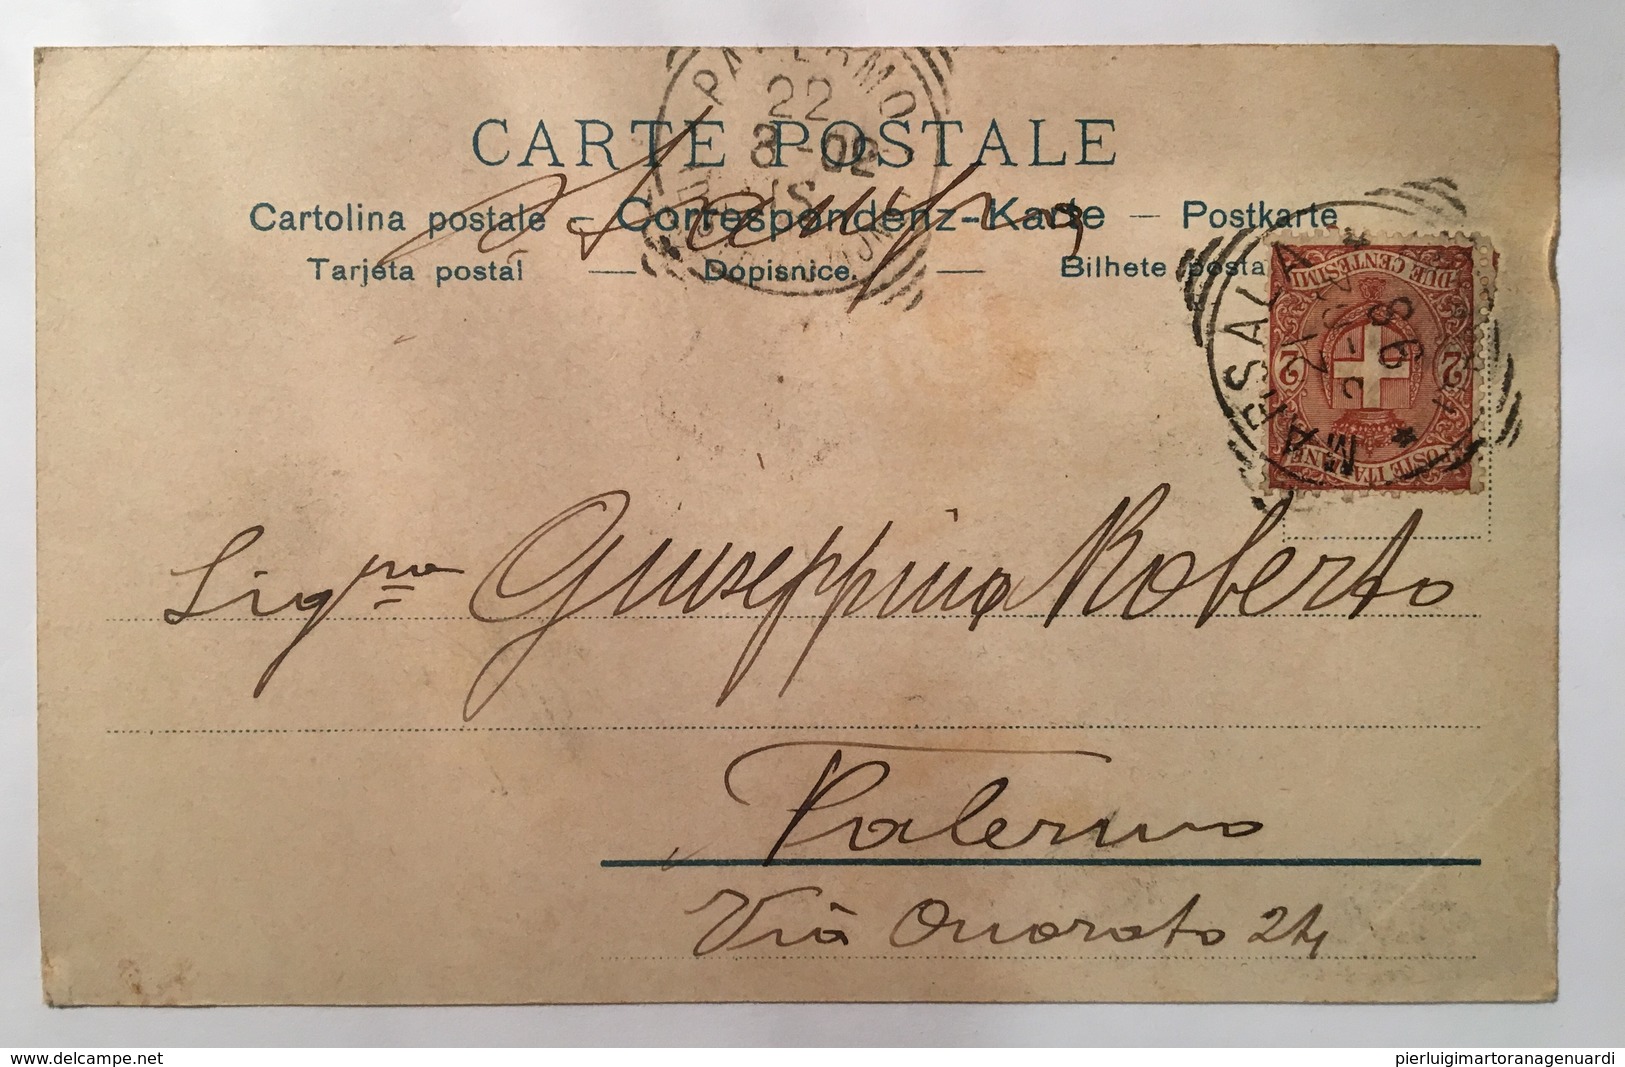 PALERMO
22
3 - 02
CARTE POSTALE
Stampa
Cartolina postale — Correspondenz-Karte — Postkarte
Tarjeta postal — Dopisnice. — Bilhete posta
MARSALA
DUE CENTESIMI
2 2
POSTE ITALIANE
Sigra Giuseppina Roberto
Palermo
Via Onorato 24
www.delcampe.net
pierluigimartoranagenuardi